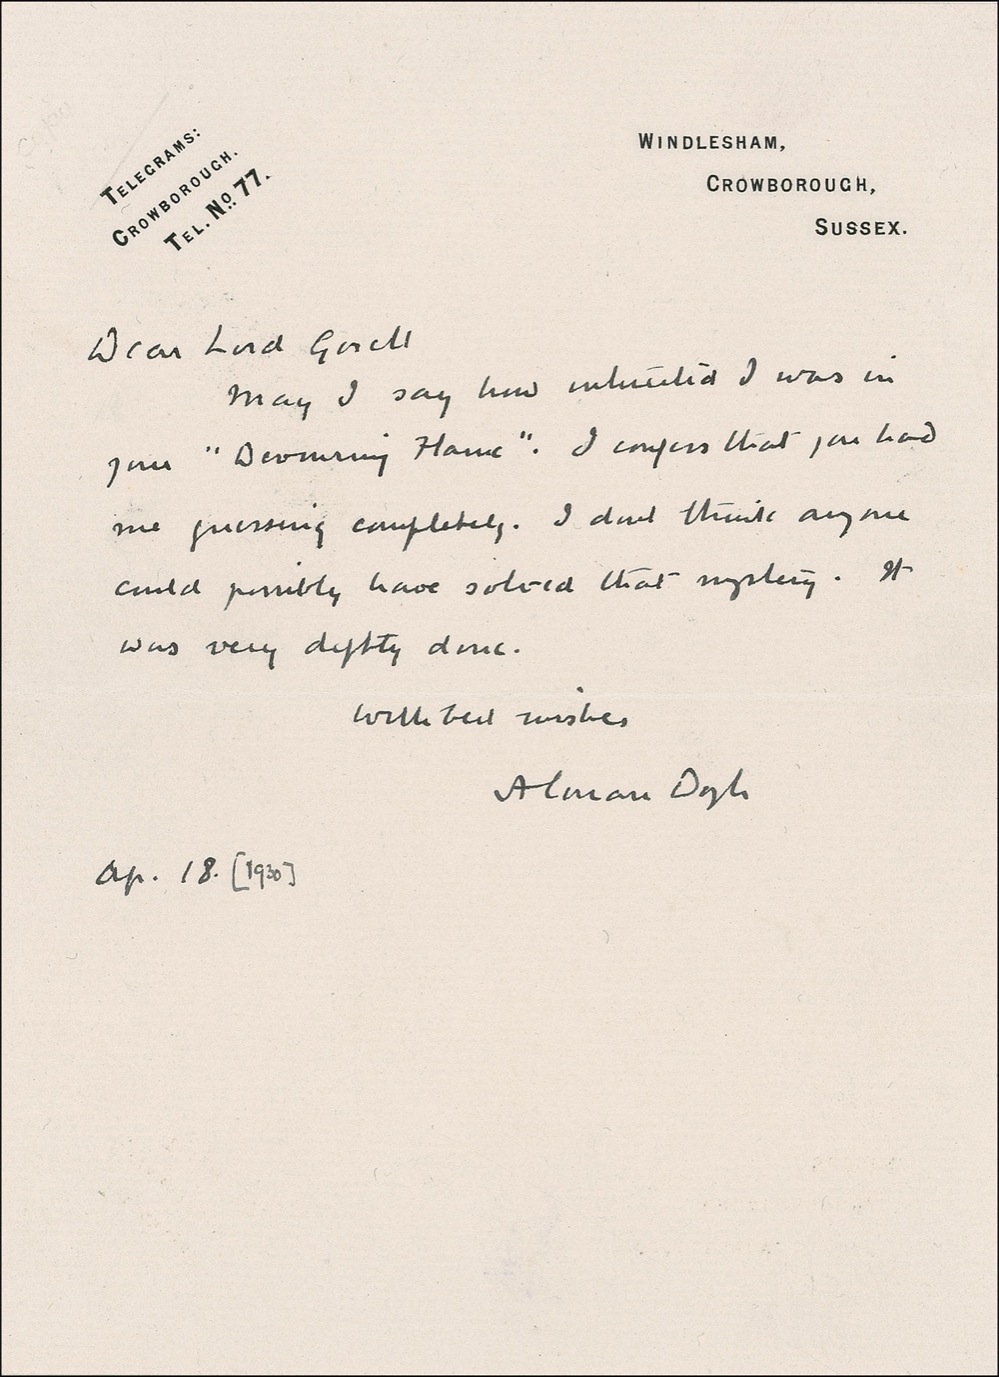 TELEGRAMS:
CROWBOROUGH.
TEL. No. 77.
WINDLESHAM,
CROWBOROUGH,
SUSSEX.
Dear Lord Gorell
May I say how interested I was in
your "Devouring Flame". I confess that you had
me guessing completely. I dont think anyone
could possibly have solved that mystery. It
was very deftly done.
With best wishes
A Conan Doyle
Ap. 18. [1930]